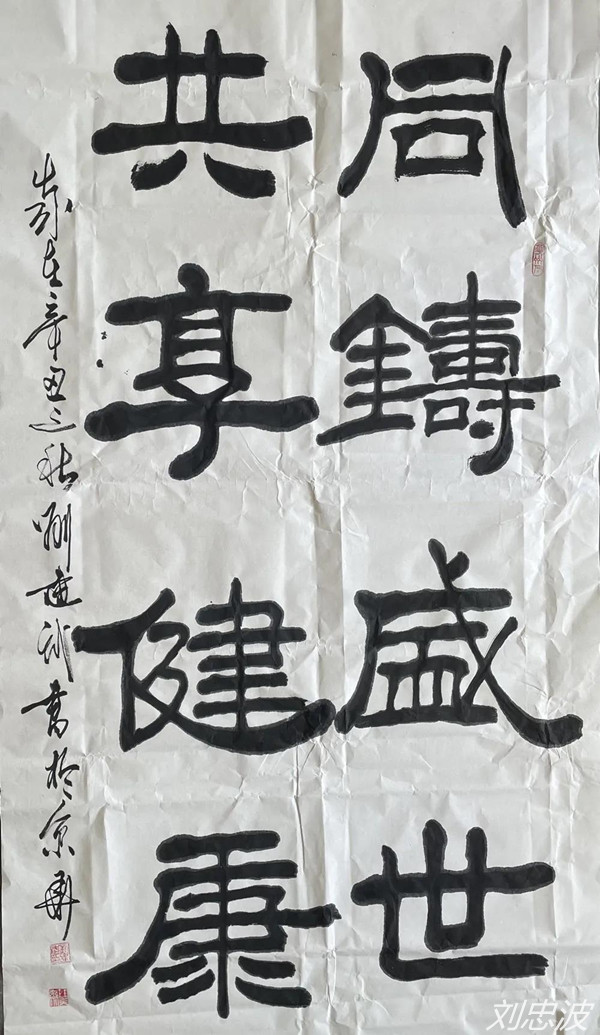 同鑄盛世
共享健康
歲在辛丑之秋建書於京華
刘忠波